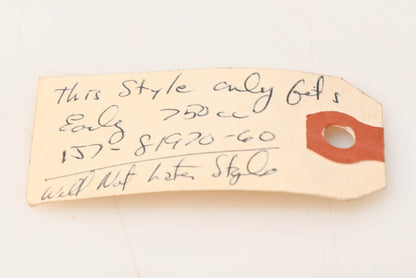 This Style only fits
Early 750cc
157-81970-60
will Not Later Style